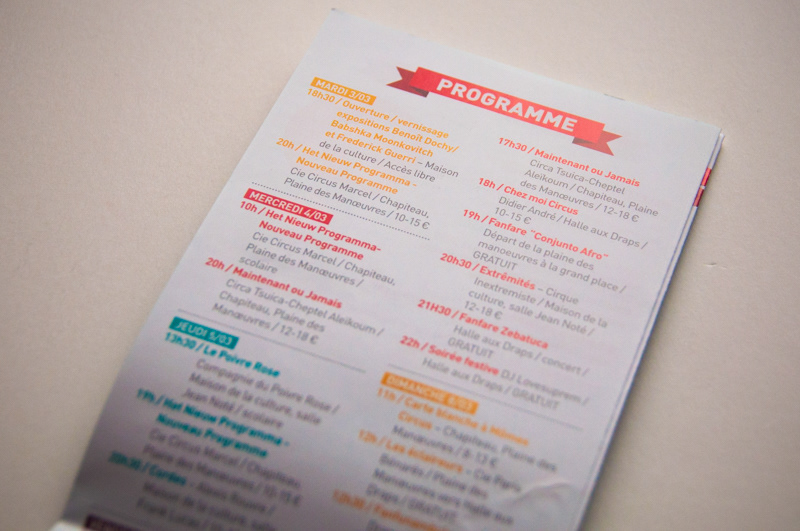 PROGRAMME
MARDI 3/03
18h30 / Ouverture / vernissage
expositions Benoît Dochy/
Babshka Moonkovitch
et Frederick Guerri – Maison
de la culture / Accès libre
20h / Het Nieuw Programma -
Nouveau Programme
Cie Circus Marcel / Chapiteau,
Plaine des Manœuvres / 10-15 €
MERCREDI 4/03
10h / Het Nieuw Programma-
Nouveau Programme
Cie Circus Marcel / Chapiteau,
Plaine des Manœuvres /
scolaire
20h / Maintenant ou Jamais
Circa Tsuica-Cheptel Aleikoum /
Chapiteau, Plaine des
Manœuvres / 12-18 €
JEUDI 5/03
13h30 / Le Poivre Rose
Compagnie du Poivre Rose /
Maison de la culture, salle
Jean Noté / scolaire
19h / Het Nieuw Programma -
Nouveau Programme
Cie Circus Marcel / Chapiteau,
Plaine des Manœuvres / 10-15 €
20h30 / Cordes –
Maison de la culture, salle
17h30 / Maintenant ou Jamais
Circa Tsuica-Cheptel
Aleikoum / Chapiteau, Plaine
des Manœuvres / 12-18 €
18h / Chez moi Circus
Didier André / Halle aux Draps /
10-15 €
19h / Fanfare "Conjunto Afro"
Départ de la plaine des
manoeuvres à la grand place /
GRATUIT
20h30 / Extrêmités – Cirque
Inextremiste / Maison de la
culture, salle Jean Noté /
12-18 €
21H30 / Fanfare Zebatuca
Halle aux Draps / concert /
GRATUIT
22h / Soirée festive DJ Lovesuprem /
Halle aux Draps / GRATUIT
DIMANCHE 8/03
11h / Carte blanche à Mômes
Circus – Chapiteau, Plaine des
Manœuvres / 8-12 €
12h / Les éclaireurs – Cie Paris
Bénarès / Plaine des
Manœuvres vers Halle aux
Draps / GRATUIT